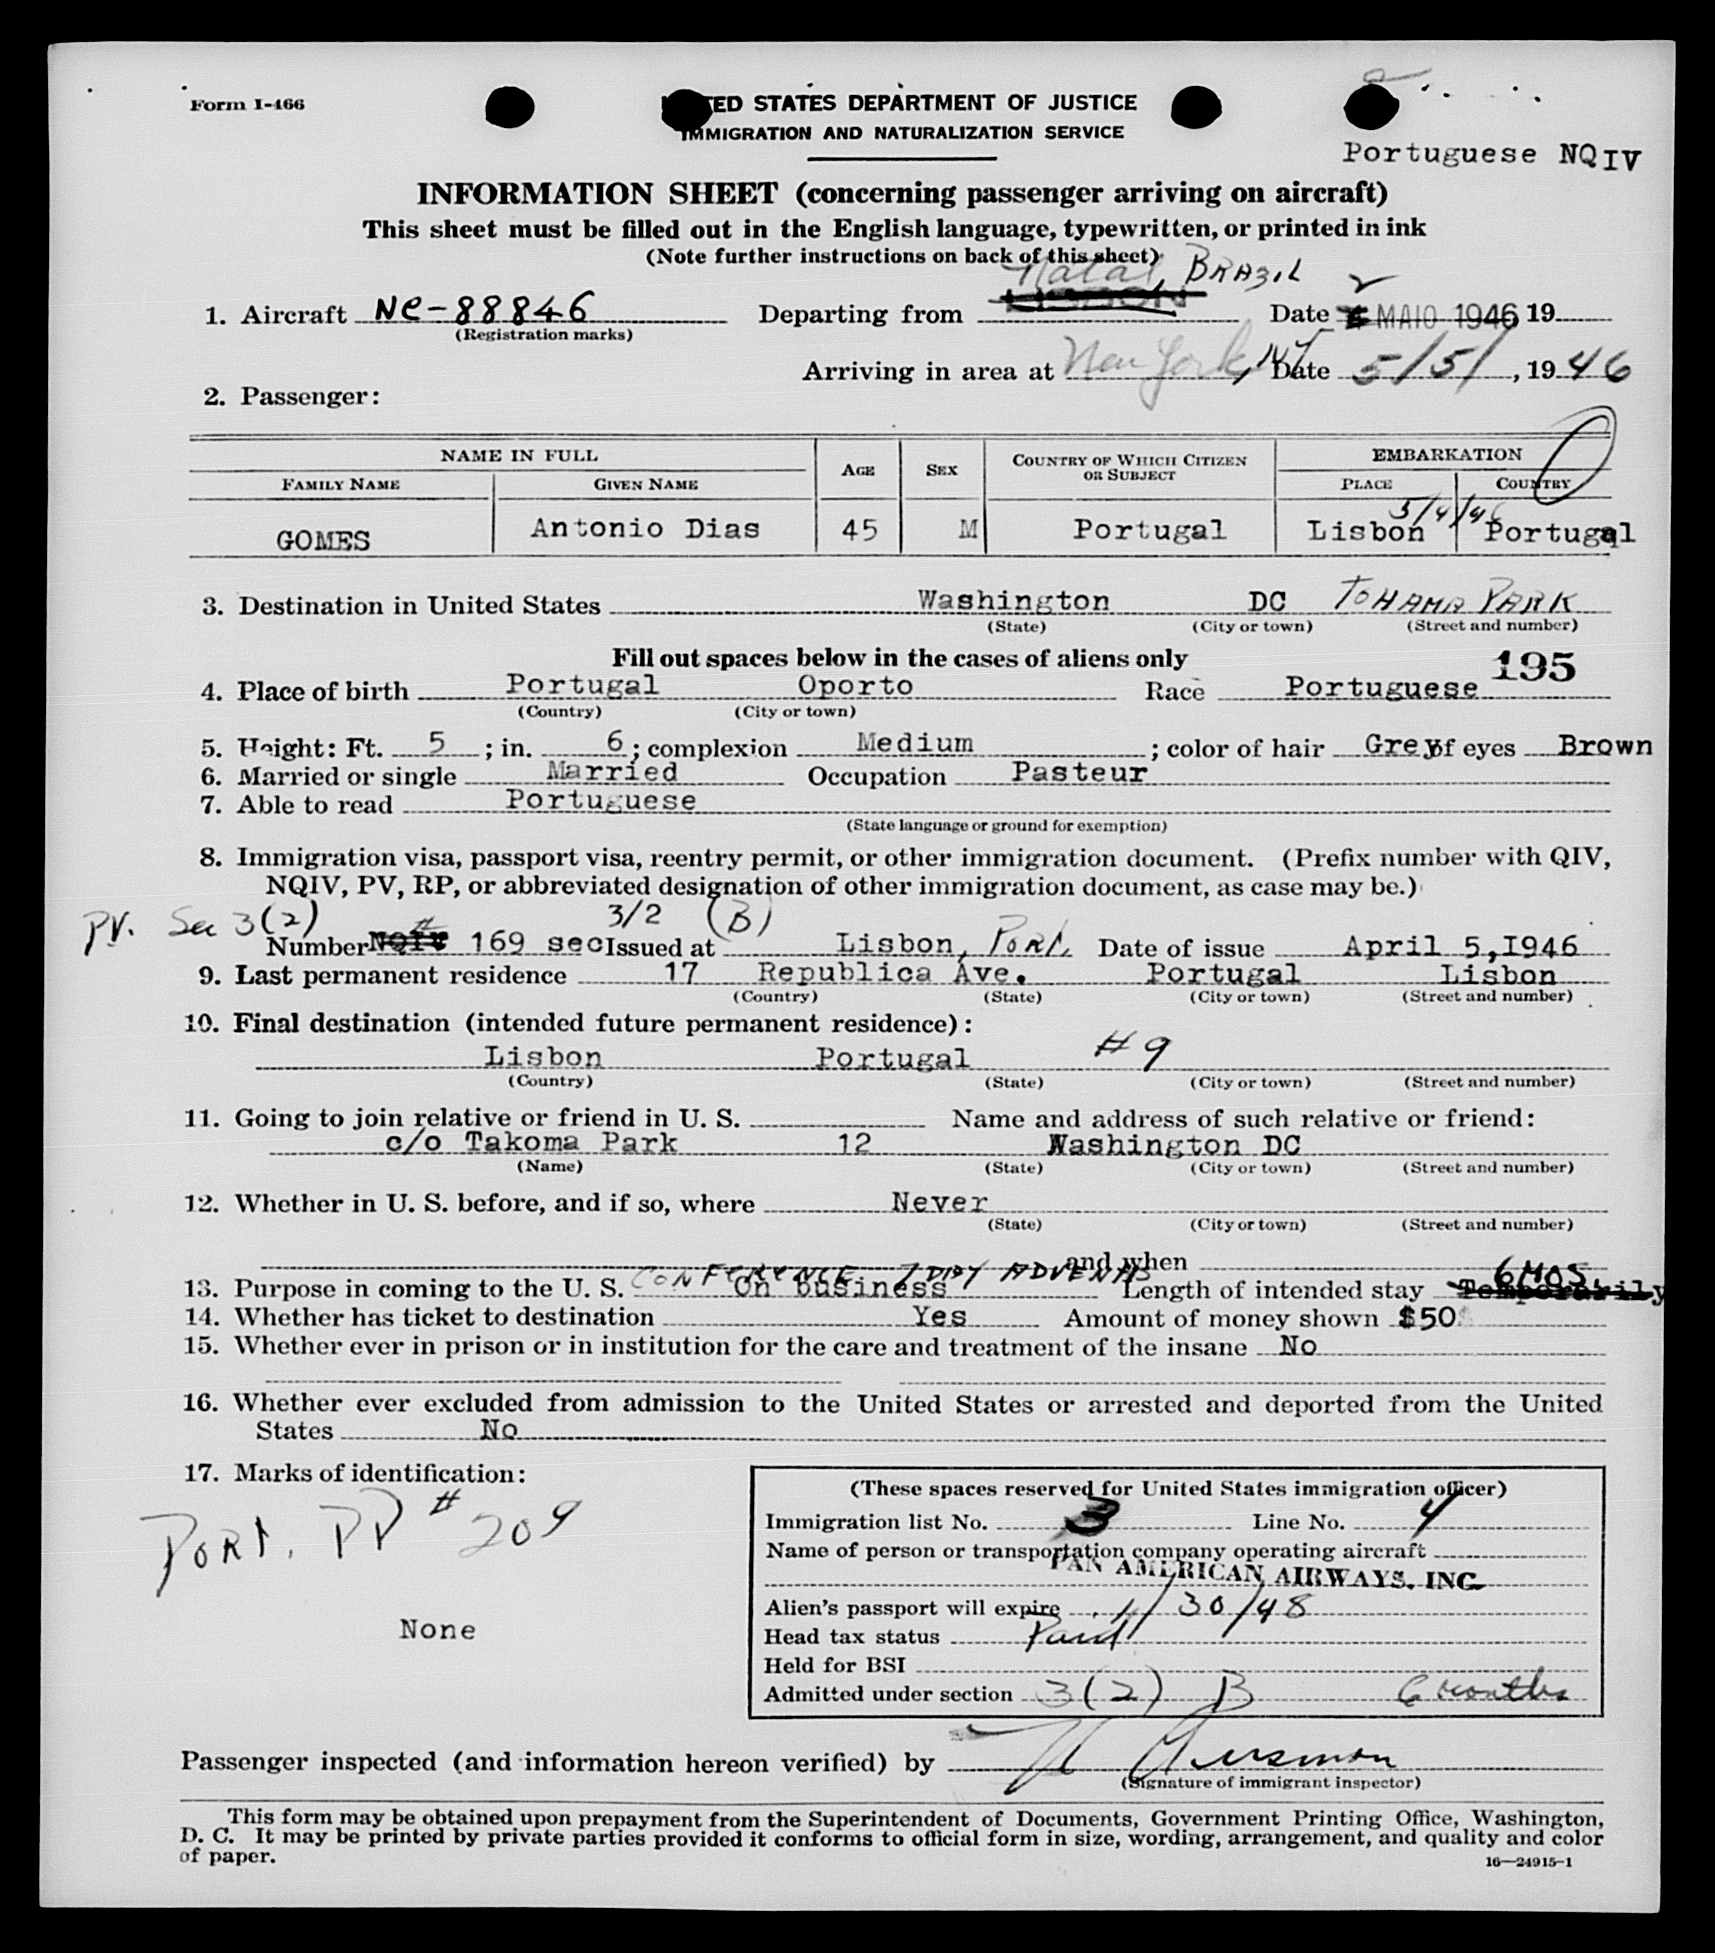 Form I-466
UNITED STATES DEPARTMENT OF JUSTICE
IMMIGRATION AND NATURALIZATION SERVICE
Portuguese NQIV
INFORMATION SHEET (concerning passenger arriving on aircraft)
This sheet must be filled out in the English language, typewritten, or printed in ink
(Note further instructions on back of this sheet)
Natal, BRAZIL
1. Aircraft NC-88846 Departing from LISBON Date MAIO 1946 19
(Registration marks)
Arriving in area at New York, NY Date 5/5/, 1946
2. Passenger:
NAME IN FULL AGE SEX COUNTRY OF WHICH CITIZEN OR SUBJECT EMBARKATION
FAMILY NAME GIVEN NAME PLACE COUNTRY
5/4/46
GOMES Antonio Dias 45 M Portugal Lisbon Portugal
3. Destination in United States Washington DC TOHAMA PARK
(State) (City or town) (Street and number)
Fill out spaces below in the cases of aliens only
195
4. Place of birth Portugal Oporto Race Portuguese
(Country) (City or town)
5. Height: Ft. 5 ; in. 6 ; complexion Medium ; color of hair Grey of eyes Brown
6. Married or single Married Occupation Pasteur
7. Able to read Portuguese
(State language or ground for exemption)
8. Immigration visa, passport visa, reentry permit, or other immigration document. (Prefix number with QIV,
NQIV, PV, RP, or abbreviated designation of other immigration document, as case may be.)
PV. Sec 3(2) # 3/2 (B)
Number NQIV 169 sec Issued at Lisbon, PORT. Date of issue April 5,I946
9. Last permanent residence 17 Republica Ave. Portugal Lisbon
(Country) (State) (City or town) (Street and number)
10. Final destination (intended future permanent residence):
Lisbon Portugal #9
(Country) (State) (City or town) (Street and number)
11. Going to join relative or friend in U. S. Name and address of such relative or friend:
c/o Takoma Park 12 Washington DC
(Name) (State) (City or town) (Street and number)
12. Whether in U. S. before, and if so, where Never
(State) (City or town) (Street and number)
and when
CONFERENCE 7 DAY ADVENTS 6 MOS.
13. Purpose in coming to the U. S. On business Length of intended stay Temporarily
14. Whether has ticket to destination Yes Amount of money shown $50
15. Whether ever in prison or in institution for the care and treatment of the insane No
16. Whether ever excluded from admission to the United States or arrested and deported from the United
States No
17. Marks of identification:
PORT. PP # 209
None
(These spaces reserved for United States immigration officer)
Immigration list No. 3 Line No. 4
Name of person or transportation company operating aircraft
PAN AMERICAN AIRWAYS. INC.
Alien's passport will expire 1/30/48
Head tax status Paid
Held for BSI
Admitted under section 3(2) B 6 months
Passenger inspected (and information hereon verified) by
(Signature of immigrant inspector)
This form may be obtained upon prepayment from the Superintendent of Documents, Government Printing Office, Washington,
D. C. It may be printed by private parties provided it conforms to official form in size, wording, arrangement, and quality and color
of paper.
16—24915-1